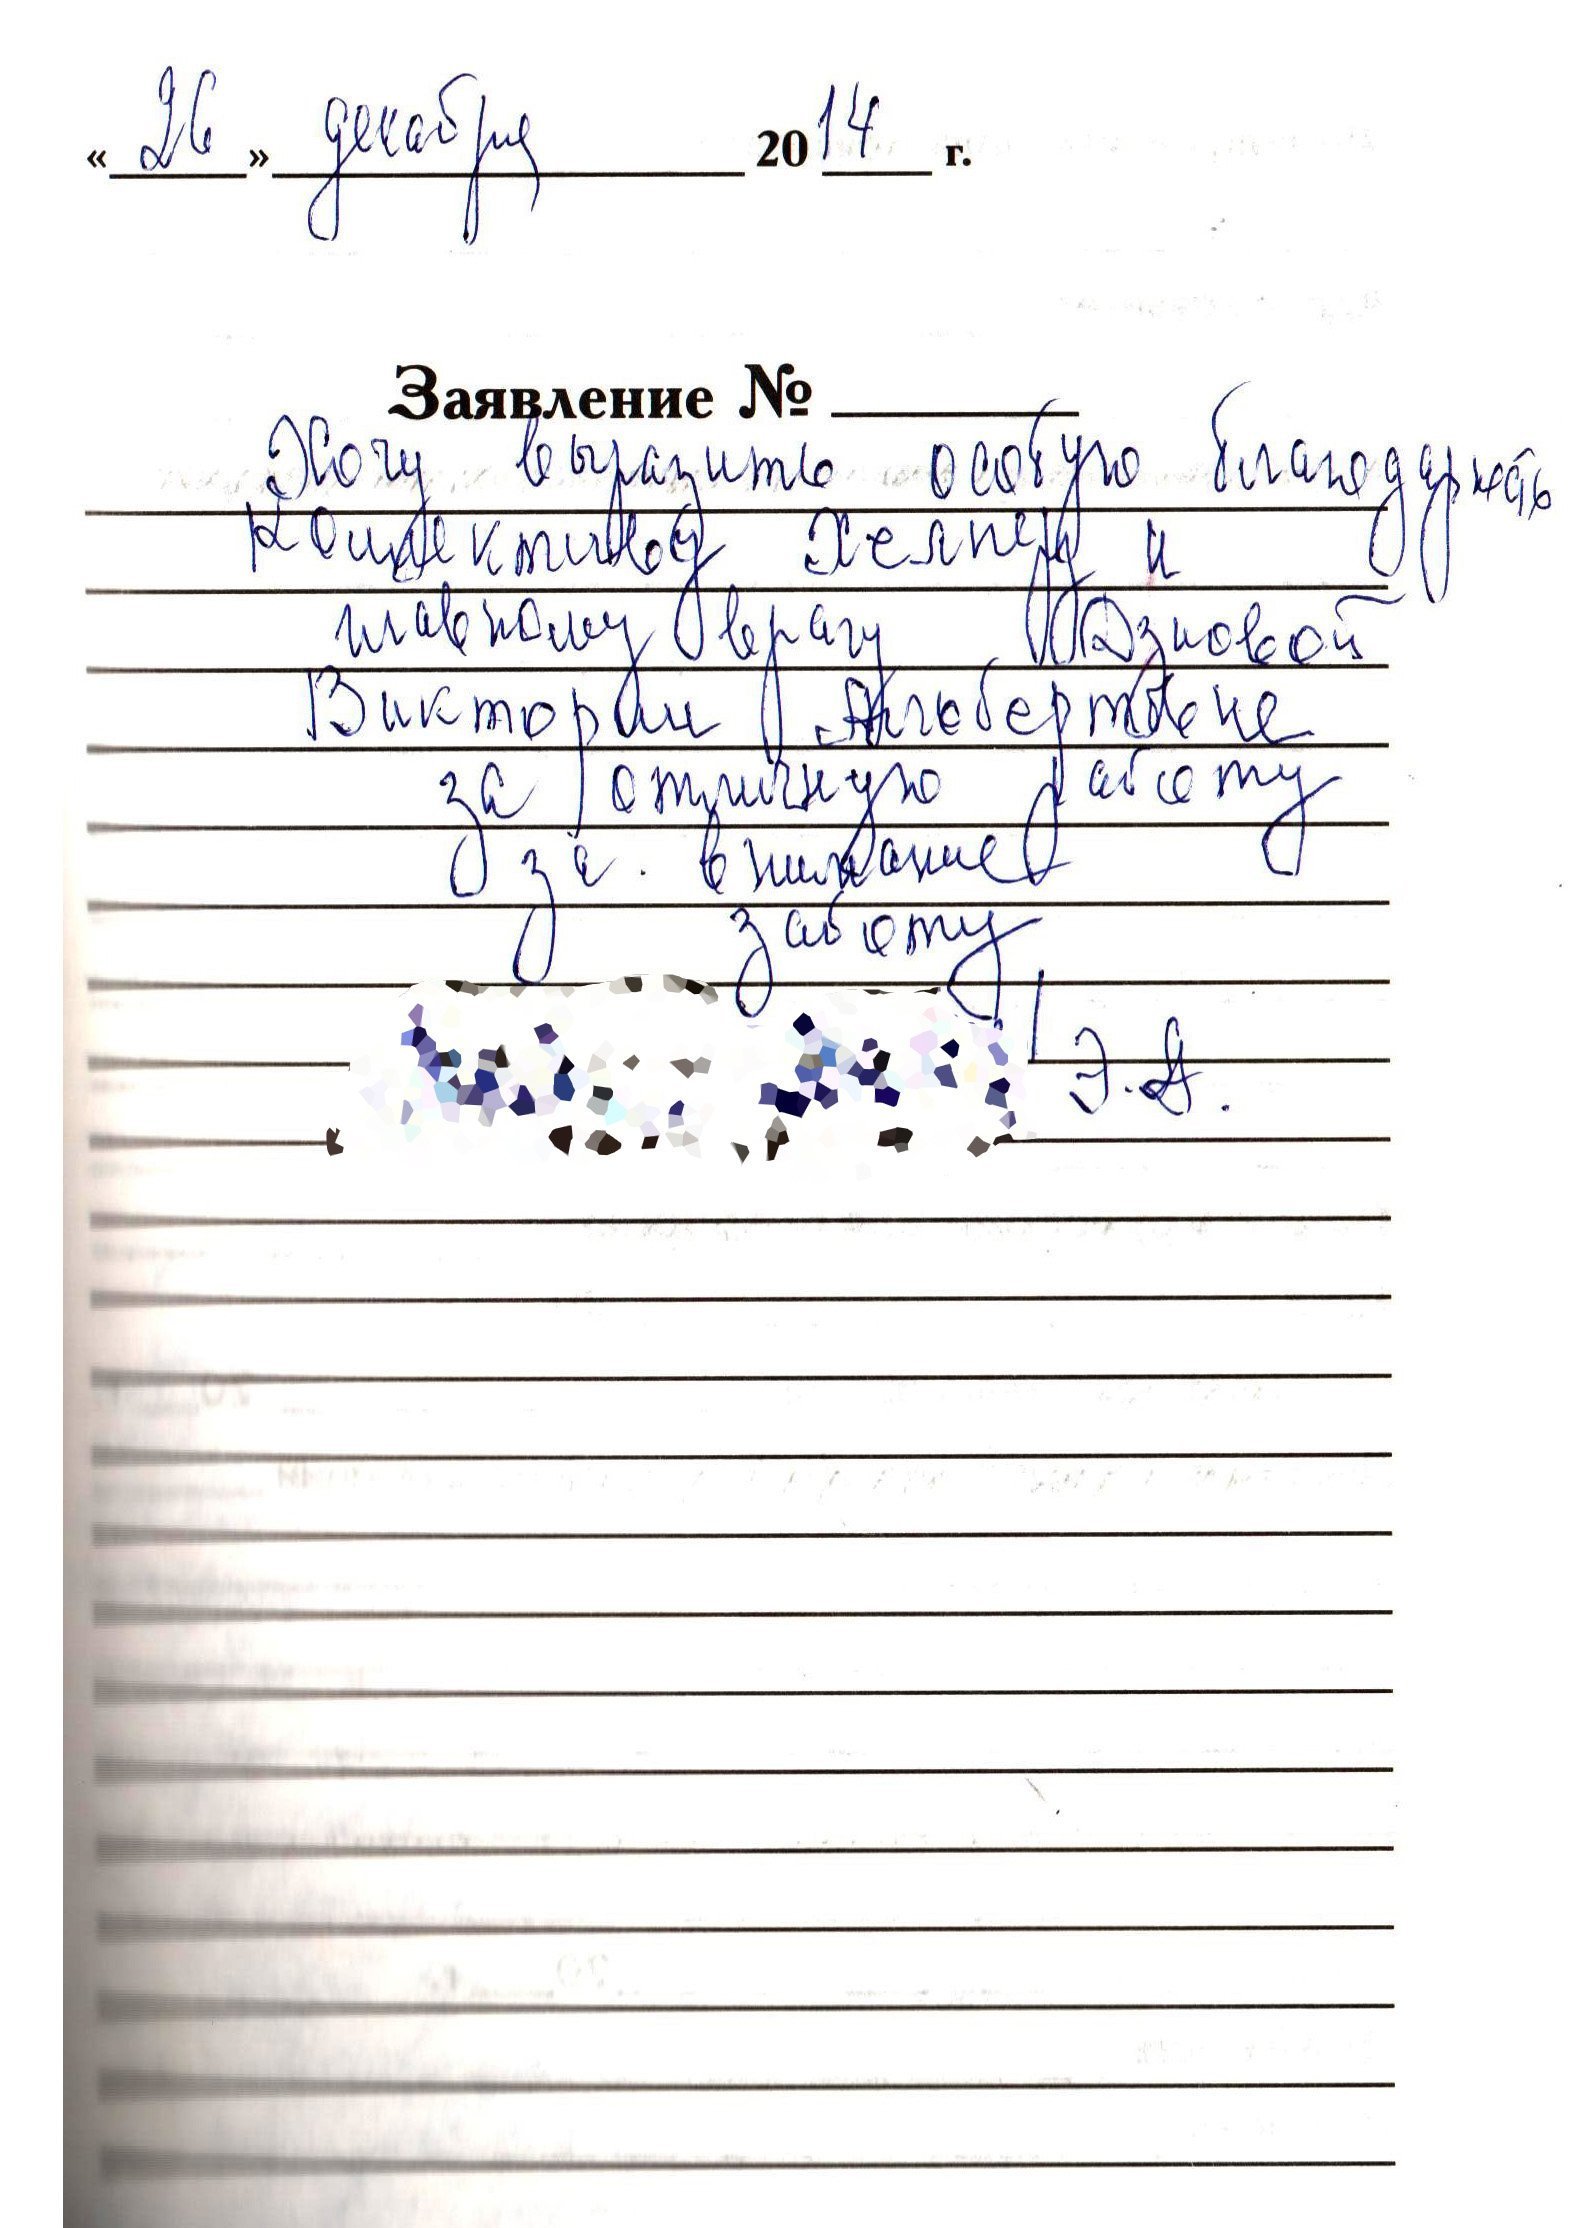 « 26 » декабря 2014 г.
Заявление №
Хочу выразить особую благодарность
Коллективу Хелпер и
главному врагу Дзиовой
Виктории Альбертовне
за отличную работу
за внимание
заботу
Э.А.